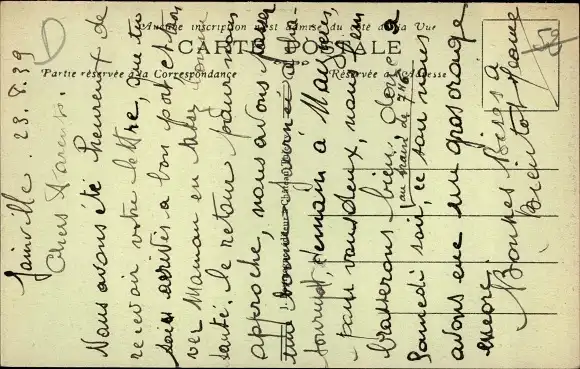 Aucune inscription n'est admise du côté de la Vue
CARTE POSTALE
Partie réservée à la Correspondance
Réservée à l'Adresse
Jainville. 23.8.39
Chers Parents.
Nous avons été heureux de
recevoir votre lettre, que tu
sois arrivés à bon port et
ver Maman en assez bonne
santé. Le retour pour nous
approche, nous avons
journée à
tournist, demain à
pour vous deux, nous
brasserons bien,
(au train de 7h
Samedi soir, ce soir nous
avons eue un gros orage
encore.
Bonnes Bises à
Bientot Jeanne